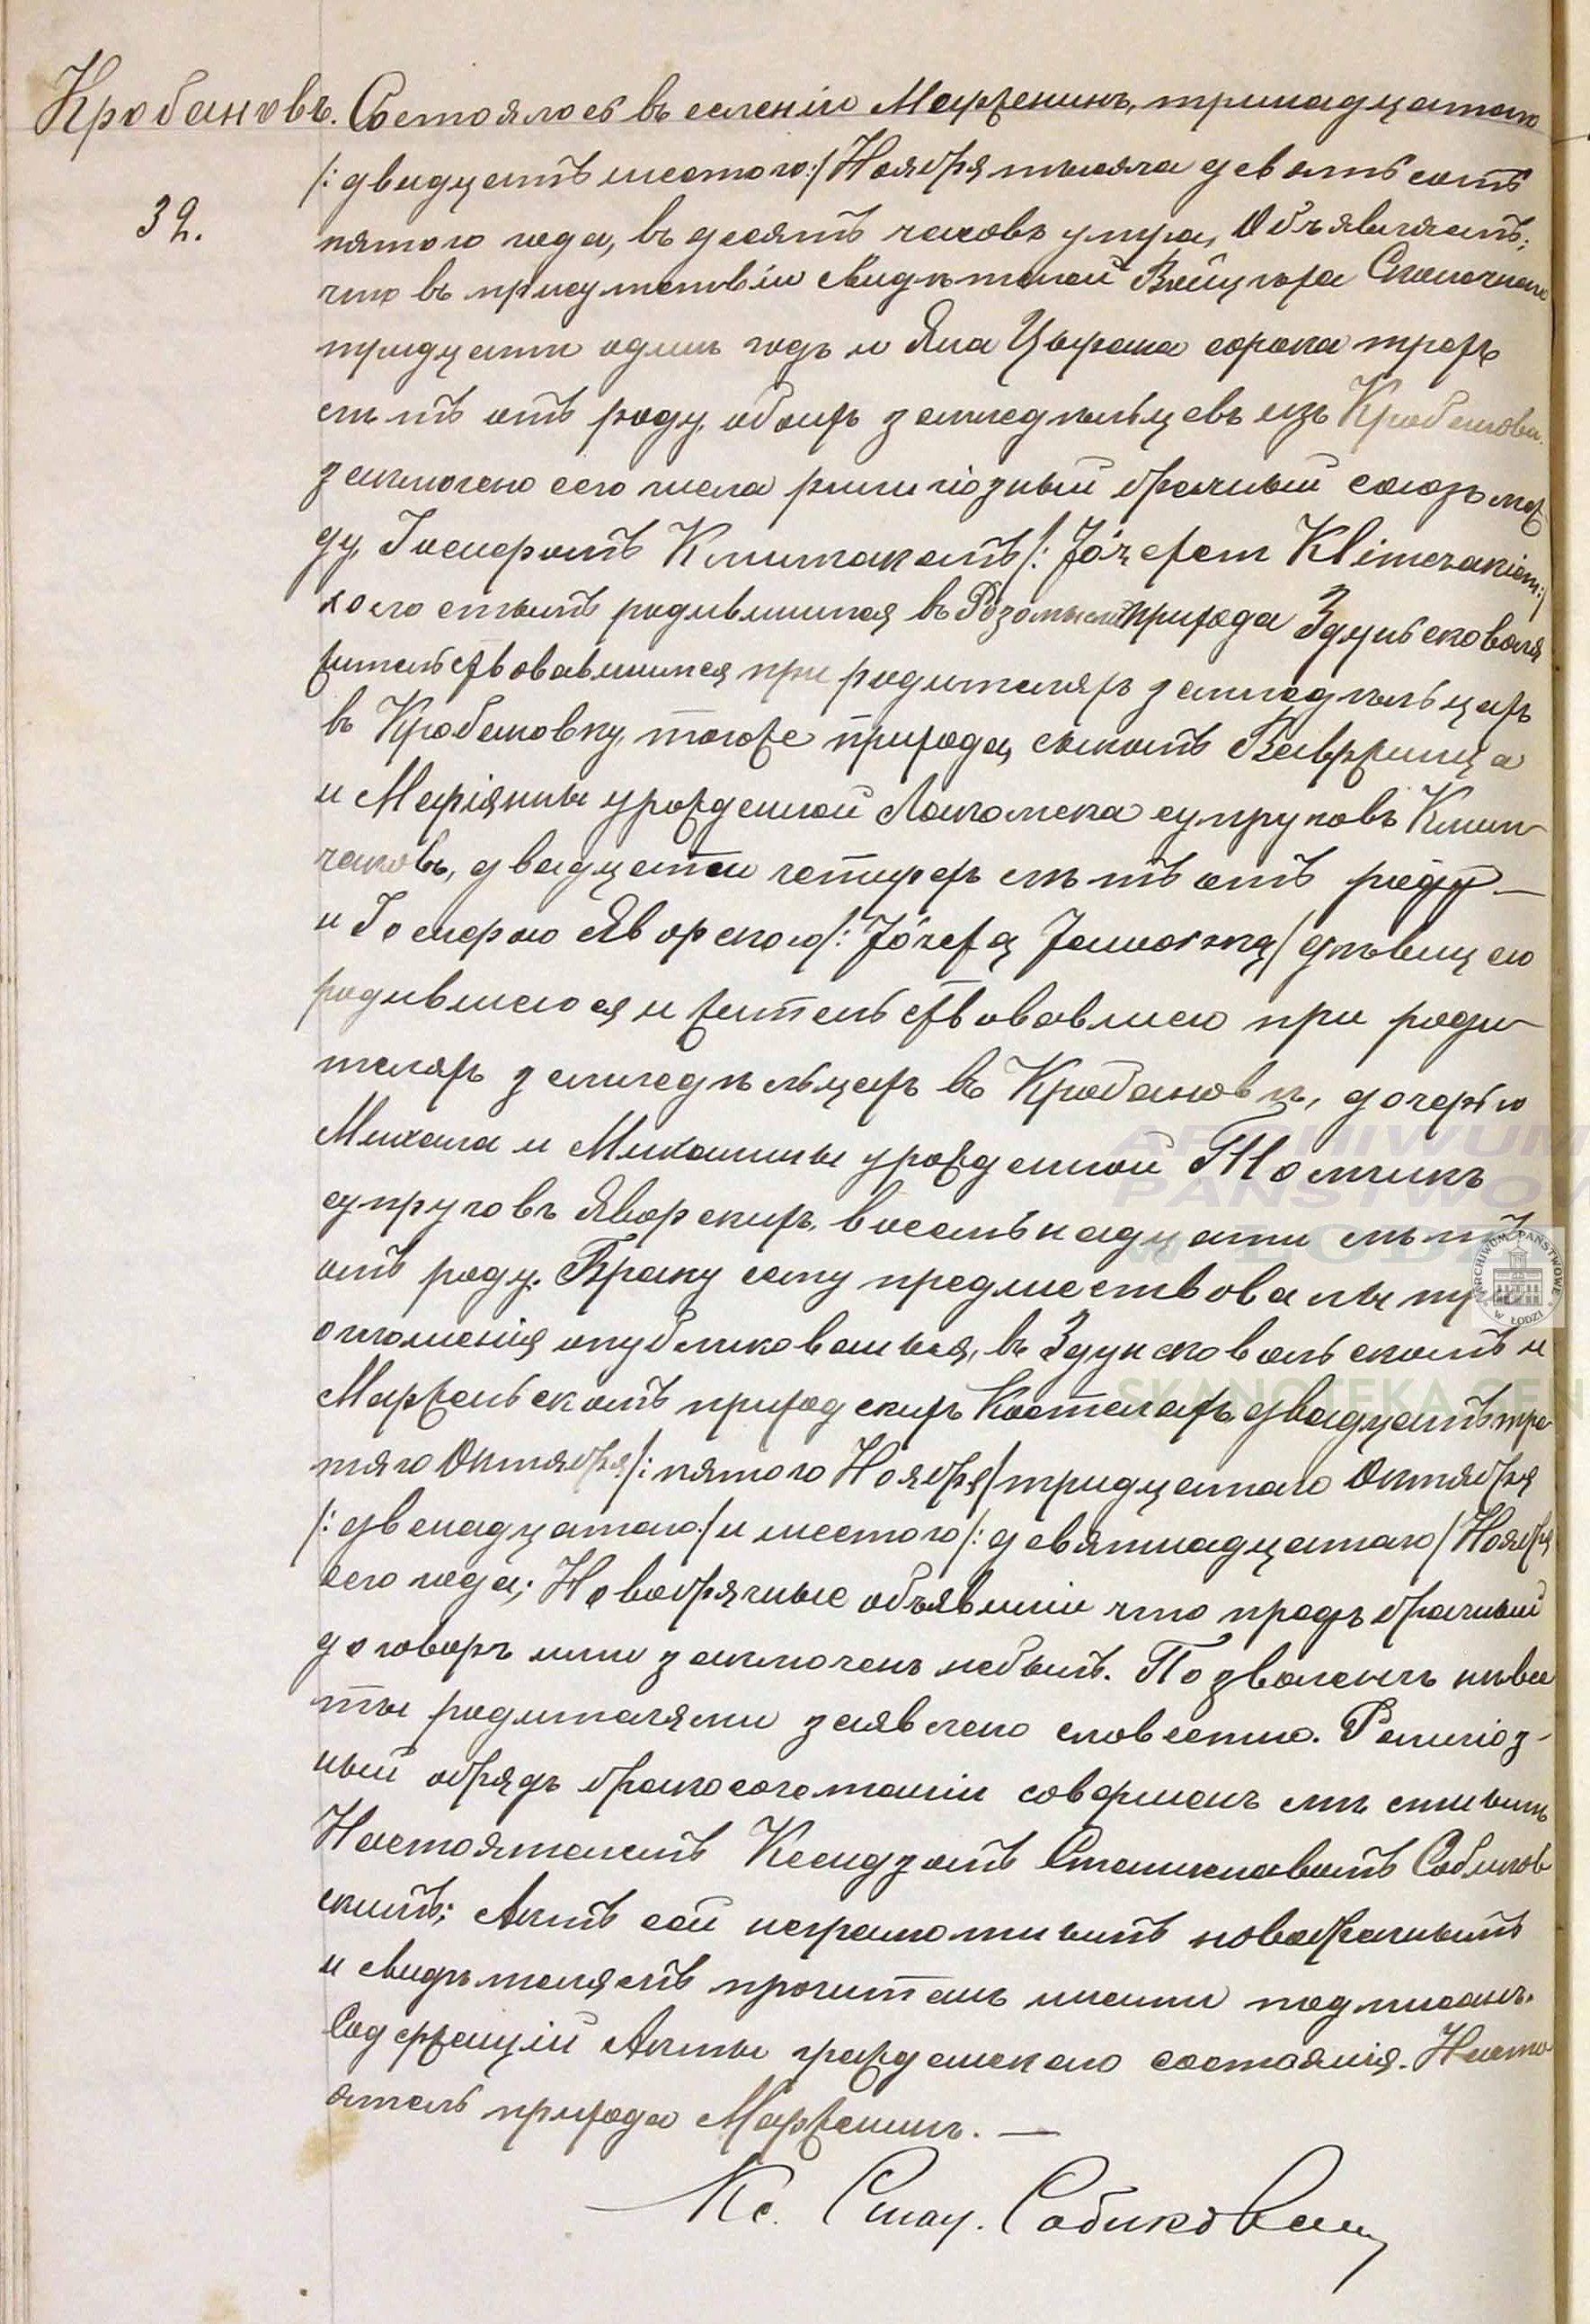 Кробановъ. Состоялось въ селеніи Марженинъ, тринадцатаго
/: двадцать шестого :/ Ноября тысяча девятьсотъ
32.
пятого года, въ десять часовъ утра, Объявляемъ;
что въ присутствіи свидѣтелей Войцѣха
тридцати одинъ годъ и Яна Цырана сорока трехъ
лѣтъ отъ роду, обоихъ земледѣльцевъ изъ Кробанова
заключено сего числа религіозный брачный союзъ меж
ду, Іосифомъ Климчакомъ /: Józefem Klimczakiem :/
родившимся въ Розомыслѣ прихода Здуньсковоля
жительствовавшимся при родителяхъ земледѣльцахъ
въ Кробановку, тогоже прихода, сыномъ Вавржинца
и Маріянны урожденной супруговъ Клим-
чаковъ, двадцати четырехъ лѣтъ отъ роду —
и Іосифою Яворскою /: Józefą Jaworską / дѣвицею
родившеюся и жительствовавшею при роди-
теляхъ земледѣльцахъ въ Кробановѣ, дочерью
Михала и Михалины урожденной Томчикъ
супруговъ Яворскихъ, восемьнадцати лѣтъ
отъ роду. Браку сему предшествовали три
оглошенія опубликованныя, въ Здунсковольскомъ и
Марженьскомъ приходскихъ Костелахъ, двадцать тре-
тяго Октября /: пятого Ноября / тридцатаго Октября
/: двенадцатаго :/ и шестого /: девятнадцатаго / Ноября
сего года; Новобрачные объявили что предъ брачный
договоръ ими заключенъ небылъ. Позволенъ невѣс
ты родителями заявлено словестно. Религіоз-
ный обрядъ бракосочетаніи совершенъ мѣстнымъ
Настоятелемъ Ксендзомъ Станиславомъ Собиков-
скимъ; Актъ сей неграмотнымъ новобрачнымъ
и свидѣтелямъ прочитанъ нисами подписанъ.
Содержащій Акты гражданскаго состоянія. Насто-
ятель прихода Марженинъ. —
Кс. Стан. Собиковски
ARCHIWUM
PAŃSTWOW
W ŁODZI
ARCHIWUM PAŃSTWOWE W ŁODZI
SKANOTEKA GEN